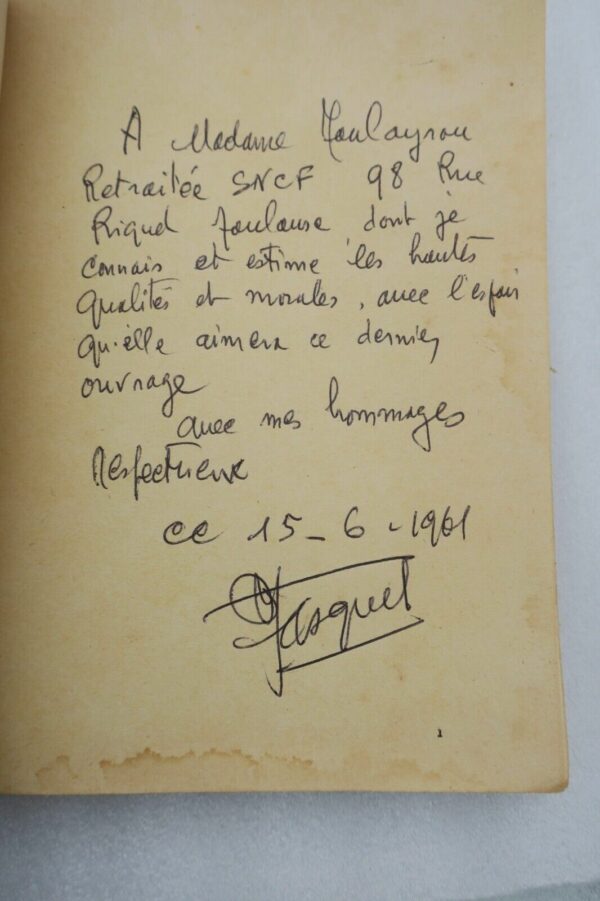 A Madame Moulayrou
Retraitée SNCF 98 Rue
Riquet Toulouse dont je
connais et estime les hautes
qualités et morales, avec l'espoir
qu'elle aimera ce dernier
ouvrage
avec mes hommages
Respectueux
ce 15-6-1961
1